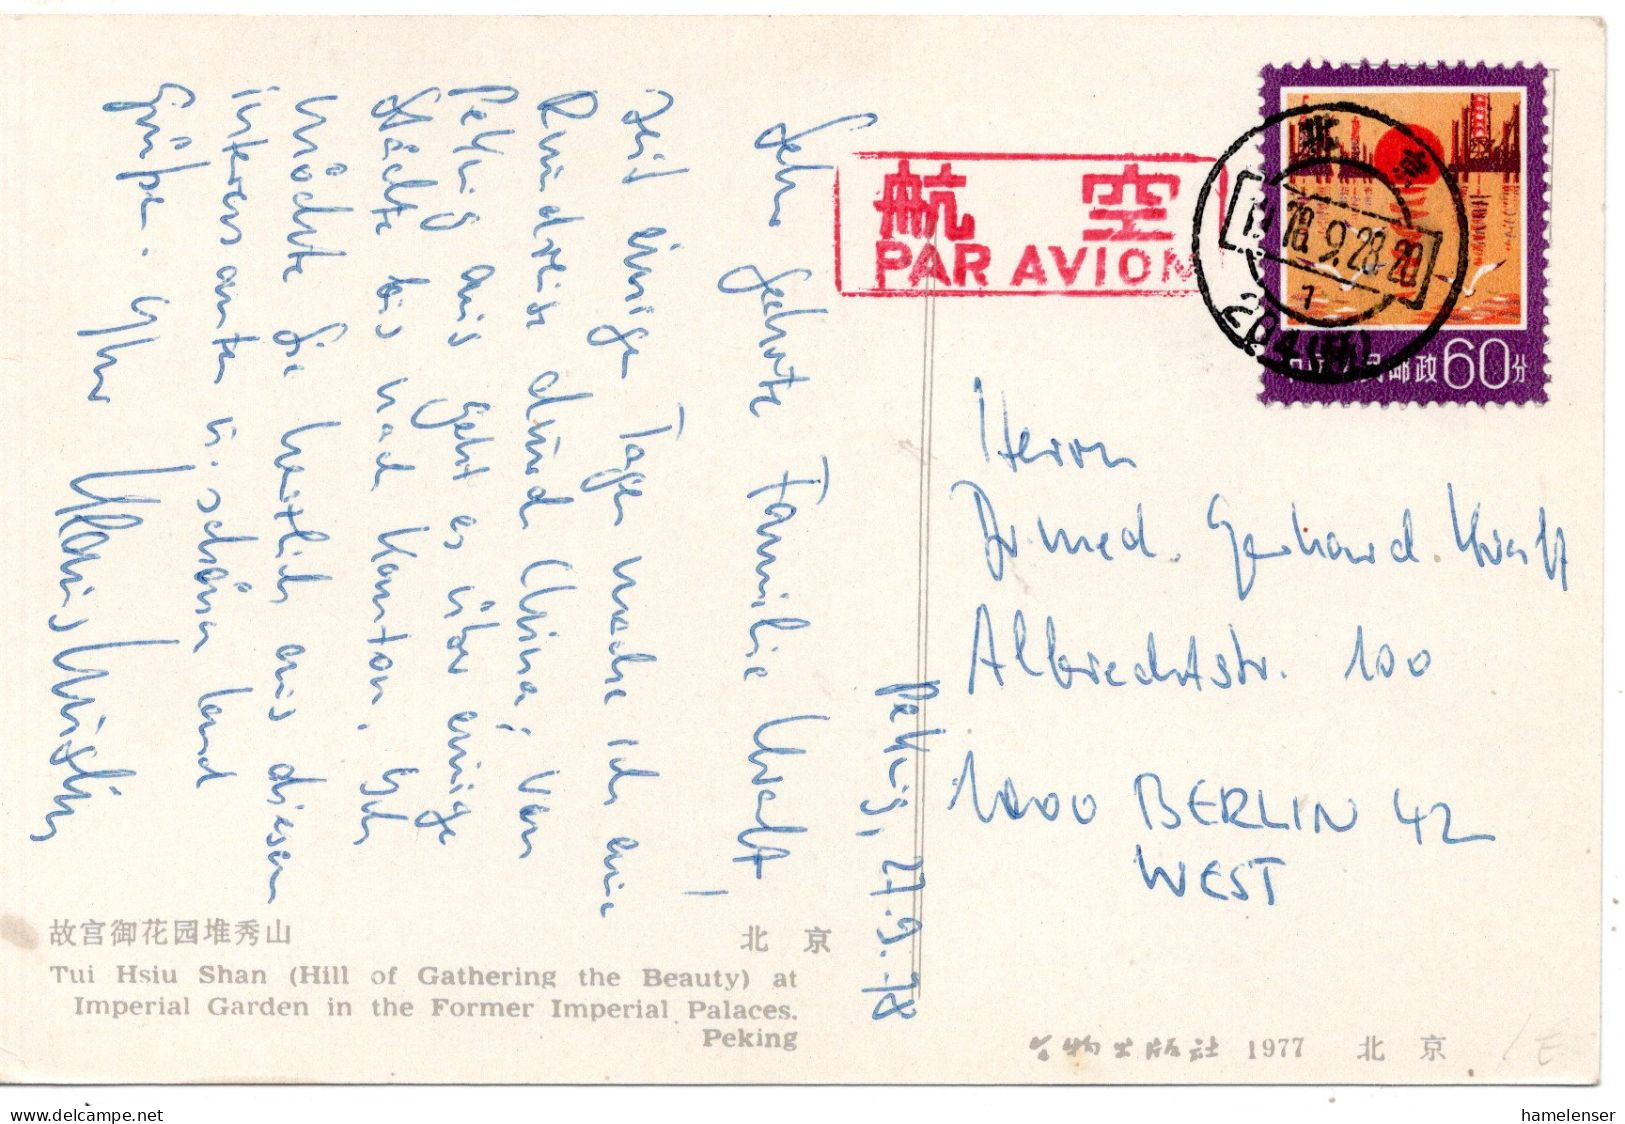 Peking, 27.9.78
Sehr geehrte Familie
Seit einigen Tagen mache ich eine
Rundreise durch China. Von
Peking aus geht es über einige
Städte bis nach Kanton. Ich
möchte Sie herzlich aus diesem
interessanten u. schönen Land
Grüßen. Ihr
航空
PAR AVION
北京
1978.9.28.20
1
中国人民邮政 60分
Herrn
Dr. med. Gerhard
Albrechtstr. 100
1000 BERLIN 42
WEST
故宫御花园堆秀山 北京
Tui Hsiu Shan (Hill of Gathering the Beauty) at
Imperial Garden in the Former Imperial Palaces.
Peking
文物出版社 1977 北京
hamelenser
www.delcampe.net